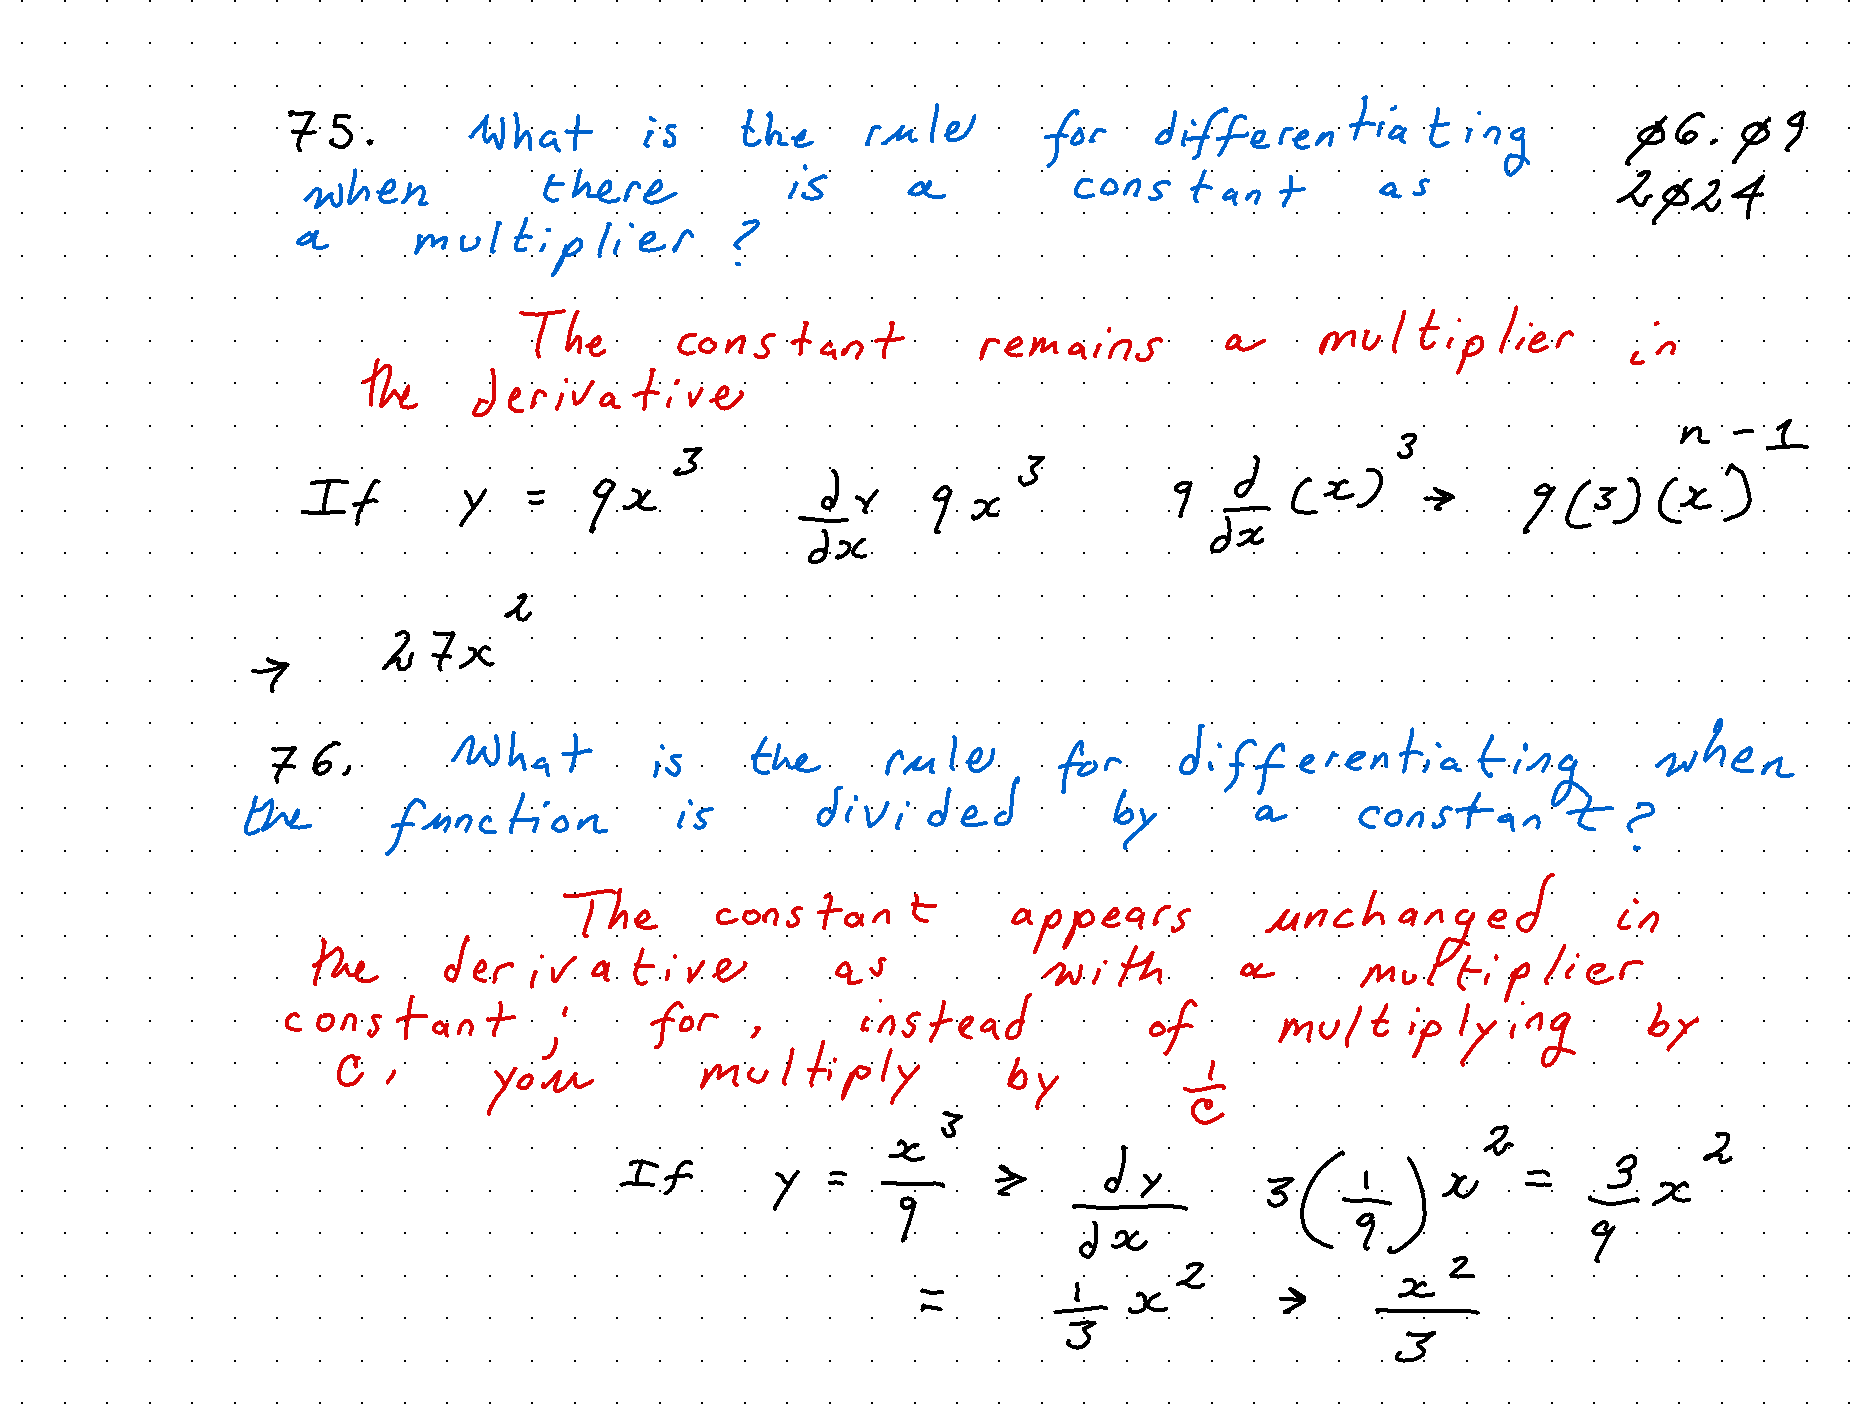 75. What is the rule for differentiating ø6.ø9
when there is a constant as 2ø24
a multiplier?
The constant remains a multiplier in
the derivative
If y = 9x³ dy/dx 9x³ 9 d/dx (x)³ → 9(3)(x)ⁿ⁻¹
→ 27x²
76. What is the rule for differentiating when
the function is divided by a constant?
The constant appears unchanged in
the derivative as with a multiplier
constant; for, instead of multiplying by
C, you multiply by 1/C
If y = x³/9 → dy/dx 3(1/9)x² = 3/9 x²
= 1/3 x² → x²/3